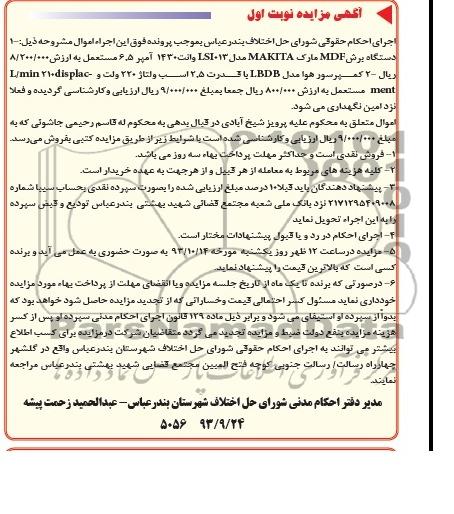 آگهی مزایده نوبت اول
اجرای احکام حقوقی شورای حل اختلاف بندرعباس بموجب پرونده فوق این اجراء اموال مشروحه ذیل:-۱
دستگاه برش MDF مارک MAKITA مدل LSI۰۱۳ وات ۱۴۳۰ آمپر ۶،۵ مستعمل به ارزش ۸/۲۰۰/۰۰۰
ریال -۲ کمپرسور هوا مدل LBDB با قدرت ۲،۵ اسب ولتاژ ۲۲۰ ولت و L/min ۲۱۰displac-
ment مستعمل به ارزش ۸۰۰/۰۰۰ ریال جمعا بمبلغ ۹/۰۰۰/۰۰۰ ریال ارزیابی وکارشناسی گردیده و فعلا
نزد امین نگهداری می شود.
اموال متعلق به محکوم علیه پرویز شیخ آبادی در قبال بدهی به محکوم له قاسم رحیمی جاشوئی که به
مبلغ ۹/۰۰۰/۰۰۰ ریال ارزیابی و کارشناسی شده است با شرایط زیر از طریق مزایده کتبی بفروش می‌رسد.
۱- فروش نقدی است و حداکثر مهلت پرداخت بهاء سه روز می باشد.
۲- کلیه هزینه های مربوط به معامله از هر قبیل و از هرجهت به عهده خریدار است.
۳- پیشنهاد دهندگان باید قبلا ۱۰ درصد مبلغ ارزیابی شده را بصورت سپرده نقدی بحساب سیبا شماره
۲۱۷۱۲۹۵۴۰۹۰۰۸ نزد بانک ملی شعبه مجتمع قضائی شهید بهشتی بندرعباس تودیع و قبض سپرده
را به این اجراء تحویل نماید
۴- اجرای احکام در رد و یا قبول پیشنهادات مختار است.
۵- مزایده درساعت ۱۲ ظهر روز یکشنبه مورخه ۹۳/۱۰/۱۴ به صورت حضوری به عمل می آید و برنده
کسی است که بالاترین قیمت را پیشنهاد نماید.
۶- درصورتی که برنده تا یک ماه از تاریخ جلسه مزایده ویا انقضای مهلت از پرداخت بهاء مورد مزایده
خودداری نماید مسئول کسر احتمالی قیمت وخساراتی که از تجدید مزایده حاصل شود خواهد بود که
بدوا از سپرده او استیفای می شود و برابر ذیل ماده ۱۲۹ قانون اجرای احکام مدنی سپرده او پس از کسر
هزینه مزایده بنفع دولت ضبط و مزایده تجدید می گردد متقاضیان شرکت درمزایده برای کسب اطلاع
بیشتر می توانند به اجرای احکام حقوقی شورای حل اختلاف شهرستان بندرعباس واقع در گلشهر
چهارراه رسالت/ رسالت جنوبی کوچه فتح المبین مجتمع قضایی شهید بهشتی بندرعباس مراجعه
نمایند.
مدیر دفتر احکام مدنی شورای حل اختلاف شهرستان بندرعباس – عبدالحمید زحمت پیشه
۹۳/۹/۲۴ ۵۰۵۶